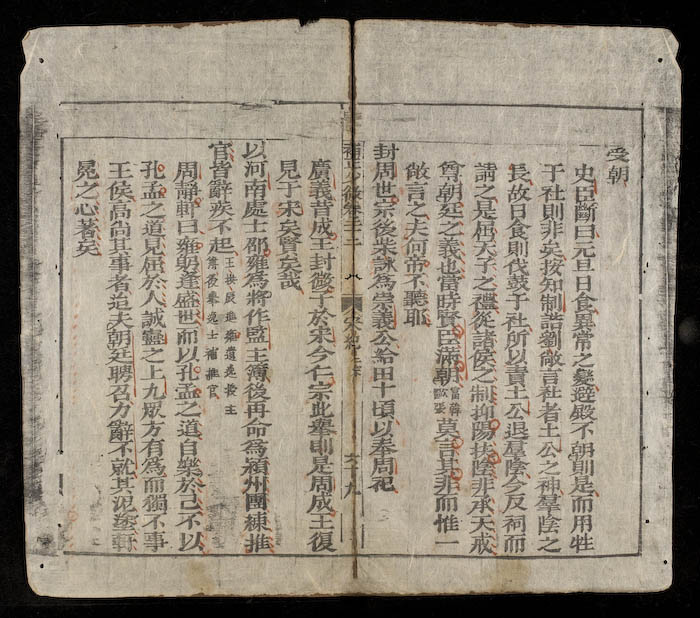 受朝
史臣斷曰元旦日食異常之變避殿不朝則是而用牲
于社則非矣按知制誥劉敞言社者土公之神羣陰之
長故日食則伐鼓于社所以責土公退羣陰今反祠而
請之是屈天子之禮從諸侯之制抑陽扶陰非承天戒
尊朝廷之義也當時賢臣滿朝富韓歐張莫言其非而惟一
敞言之夫何帝不聽耶
封周世宗後柴詠為崇義公給田十頃以奉周祀
卷三二 八 宋紀 六十九
廣義昔成王封微子於宋今仁宗此舉則是周成王復
見于宋矣賢矣哉
以河南處士邵雍為將作監主簿後再命為潁州團練推
官皆辭疾不起王拱辰薦雍遺逸授主簿後舉逸士補推官
周靜軒曰雍躬逢盛世而以孔孟之道自樂於己不以
孔孟之道見屈於人誠蠱之上九眾方有為而獨不事
王侯高尚其事者迨夫朝廷聘召力辭不就其泥塗軒
冕之心著矣